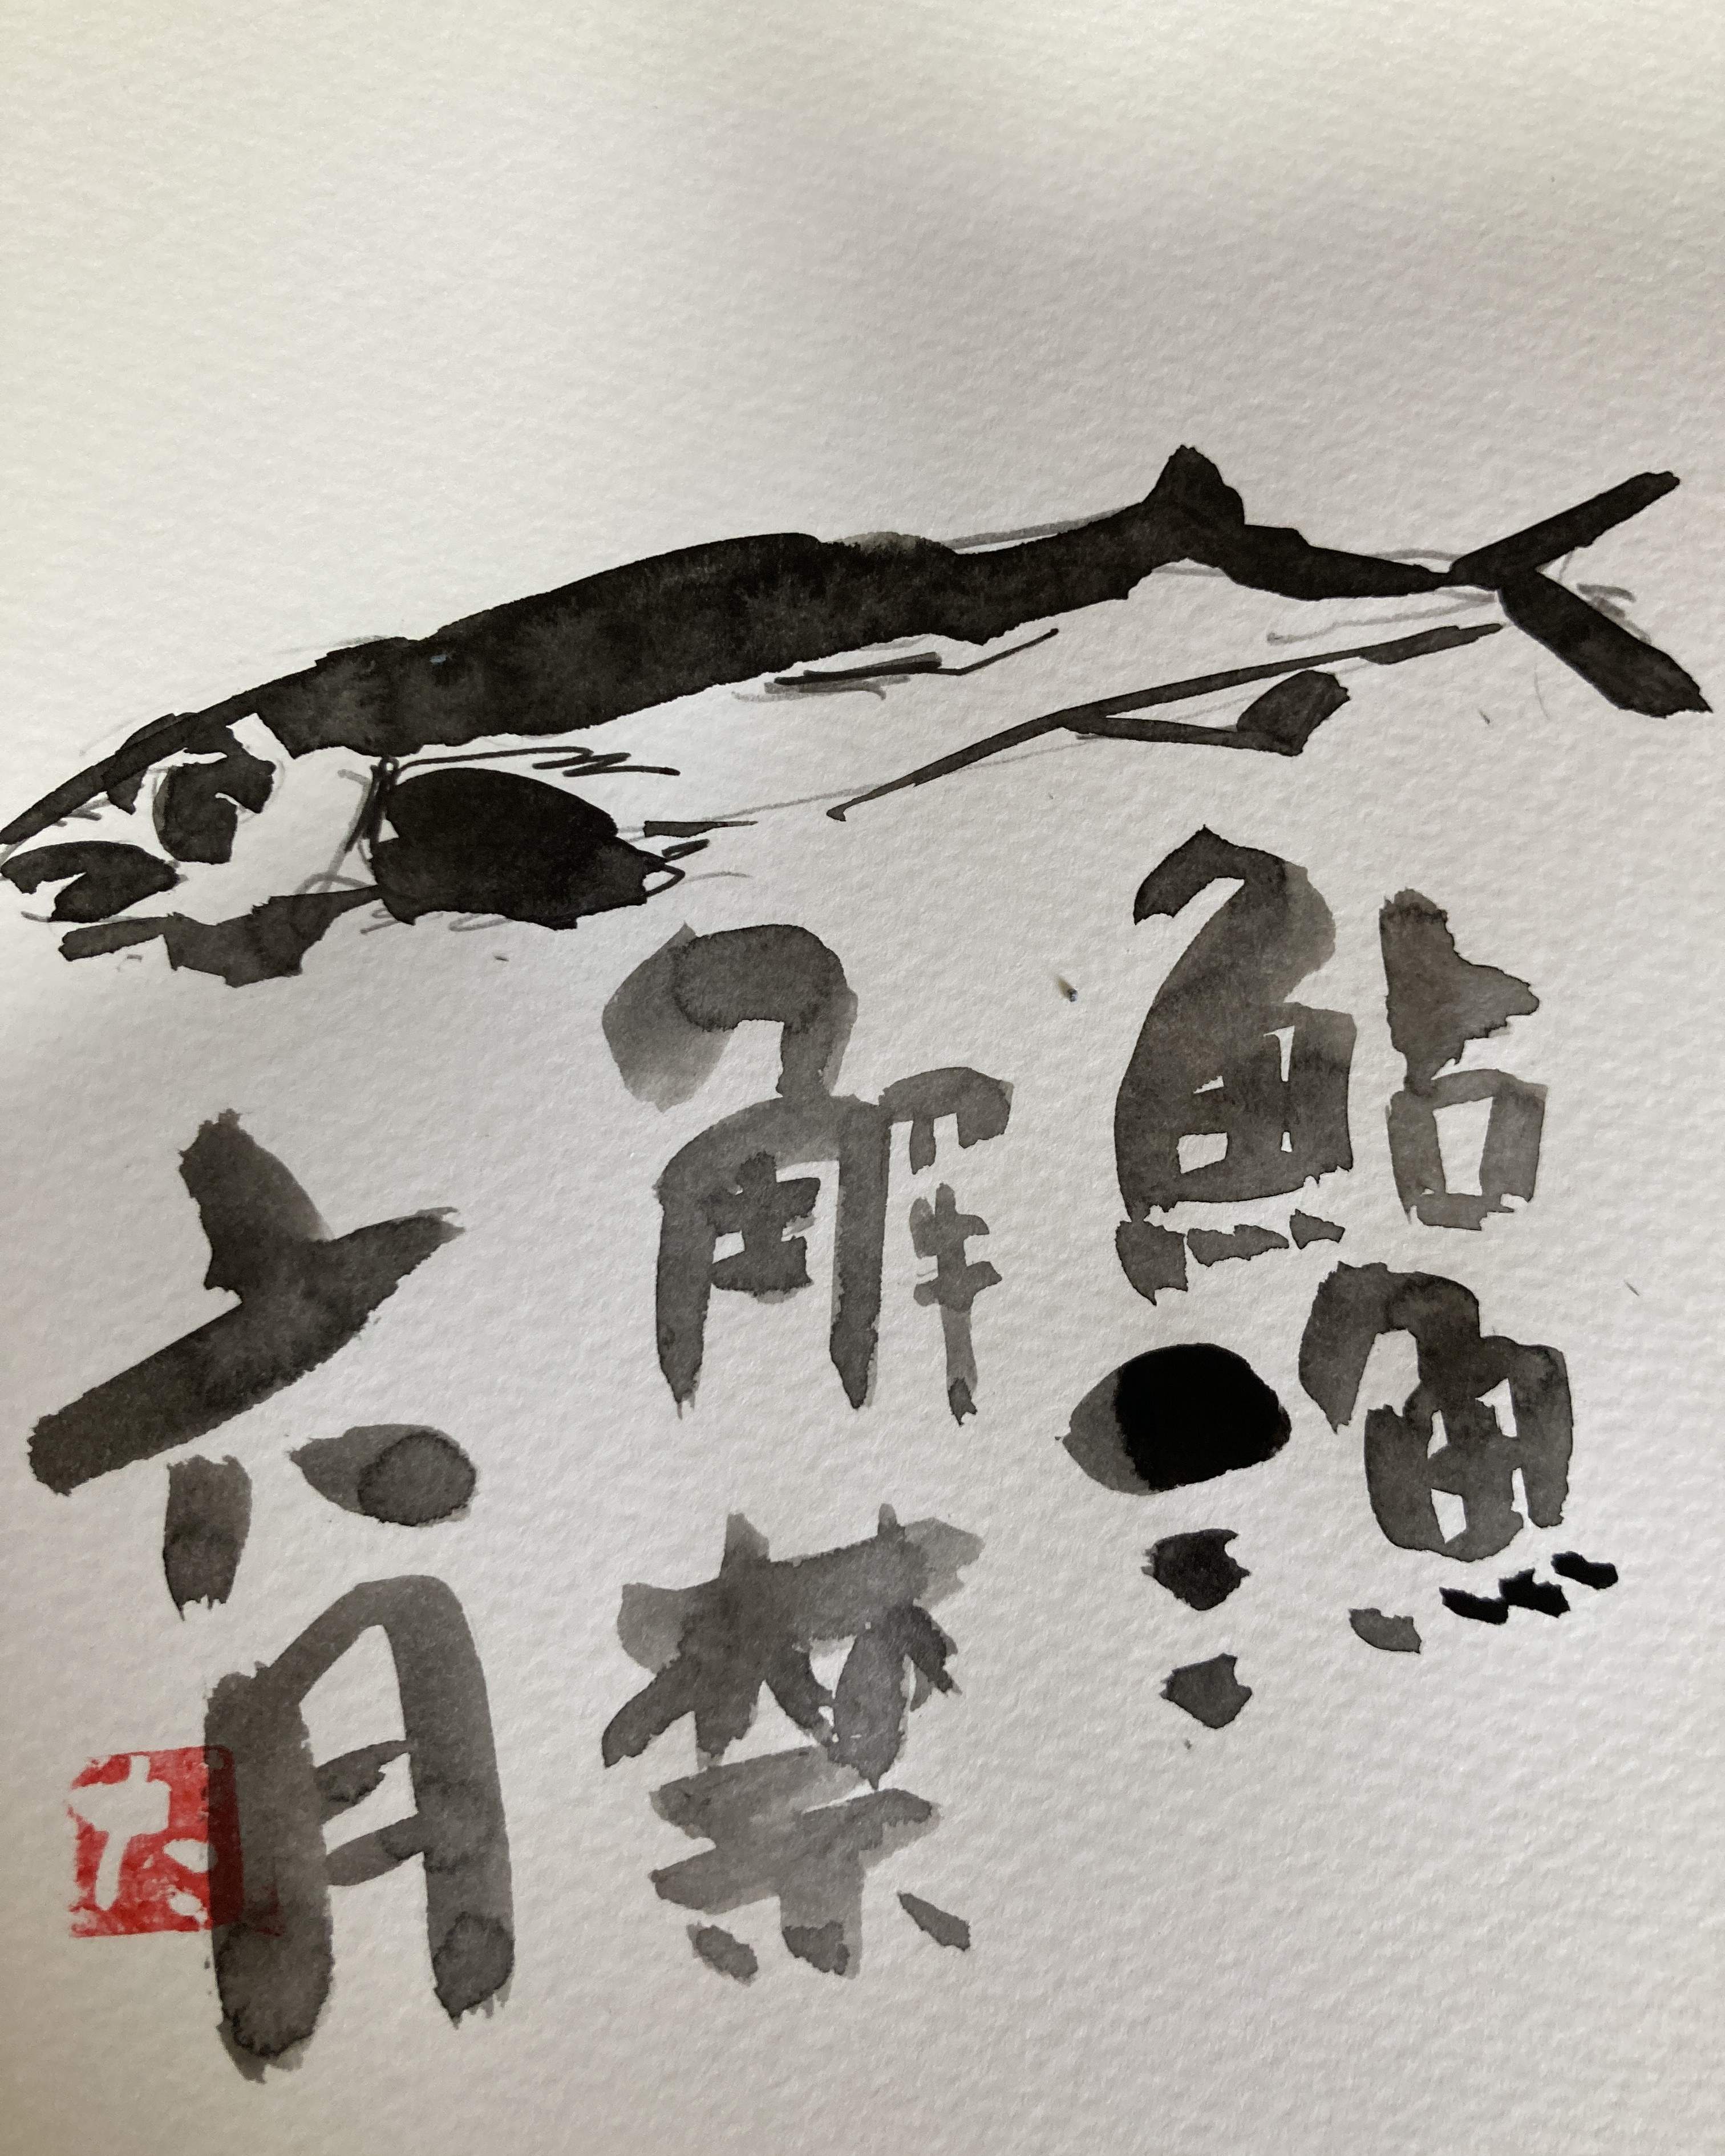 鮎漁
解禁
六月